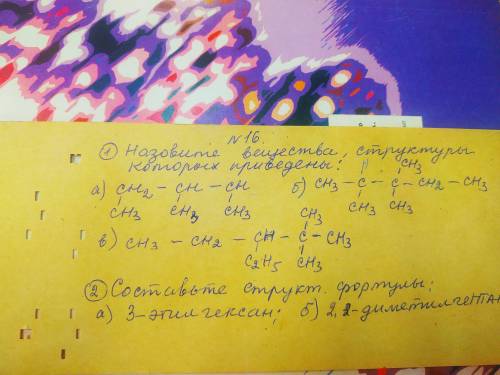 № 16.
① Назовите вещества, структуры
которых приведены:
CH3
а) CH2 – CH – CH б) CH3 – C – C – CH2 – CH3
CH3 CH3 CH3 CH3 CH3
CH3
в) CH3 – CH2 – CH – C – CH3
C2H5 CH3
② Составьте структ. формулы:
а) 3-этилгексан; б) 2,2-диметилгептан